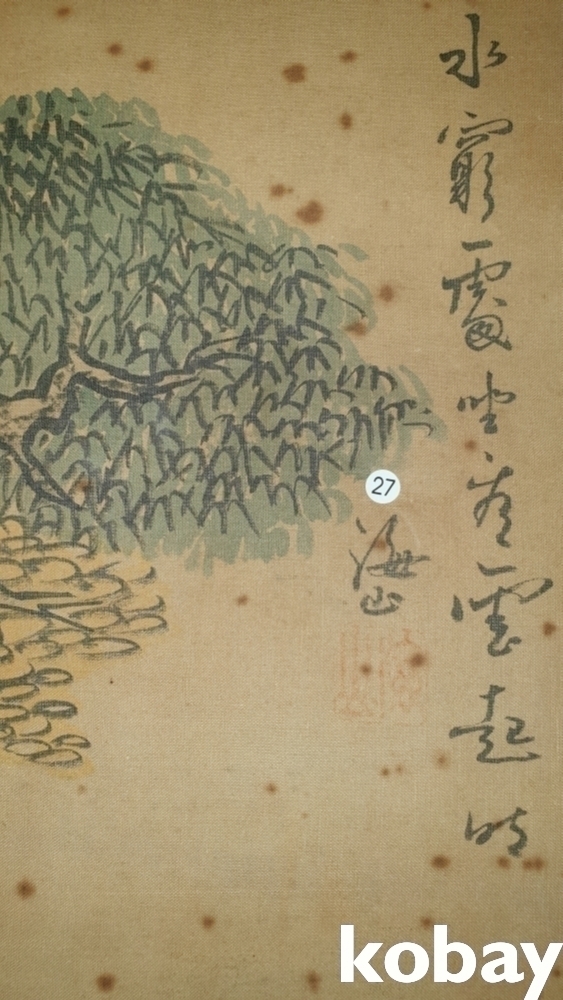 水窮處坐看雲起時
27
海山
kobay